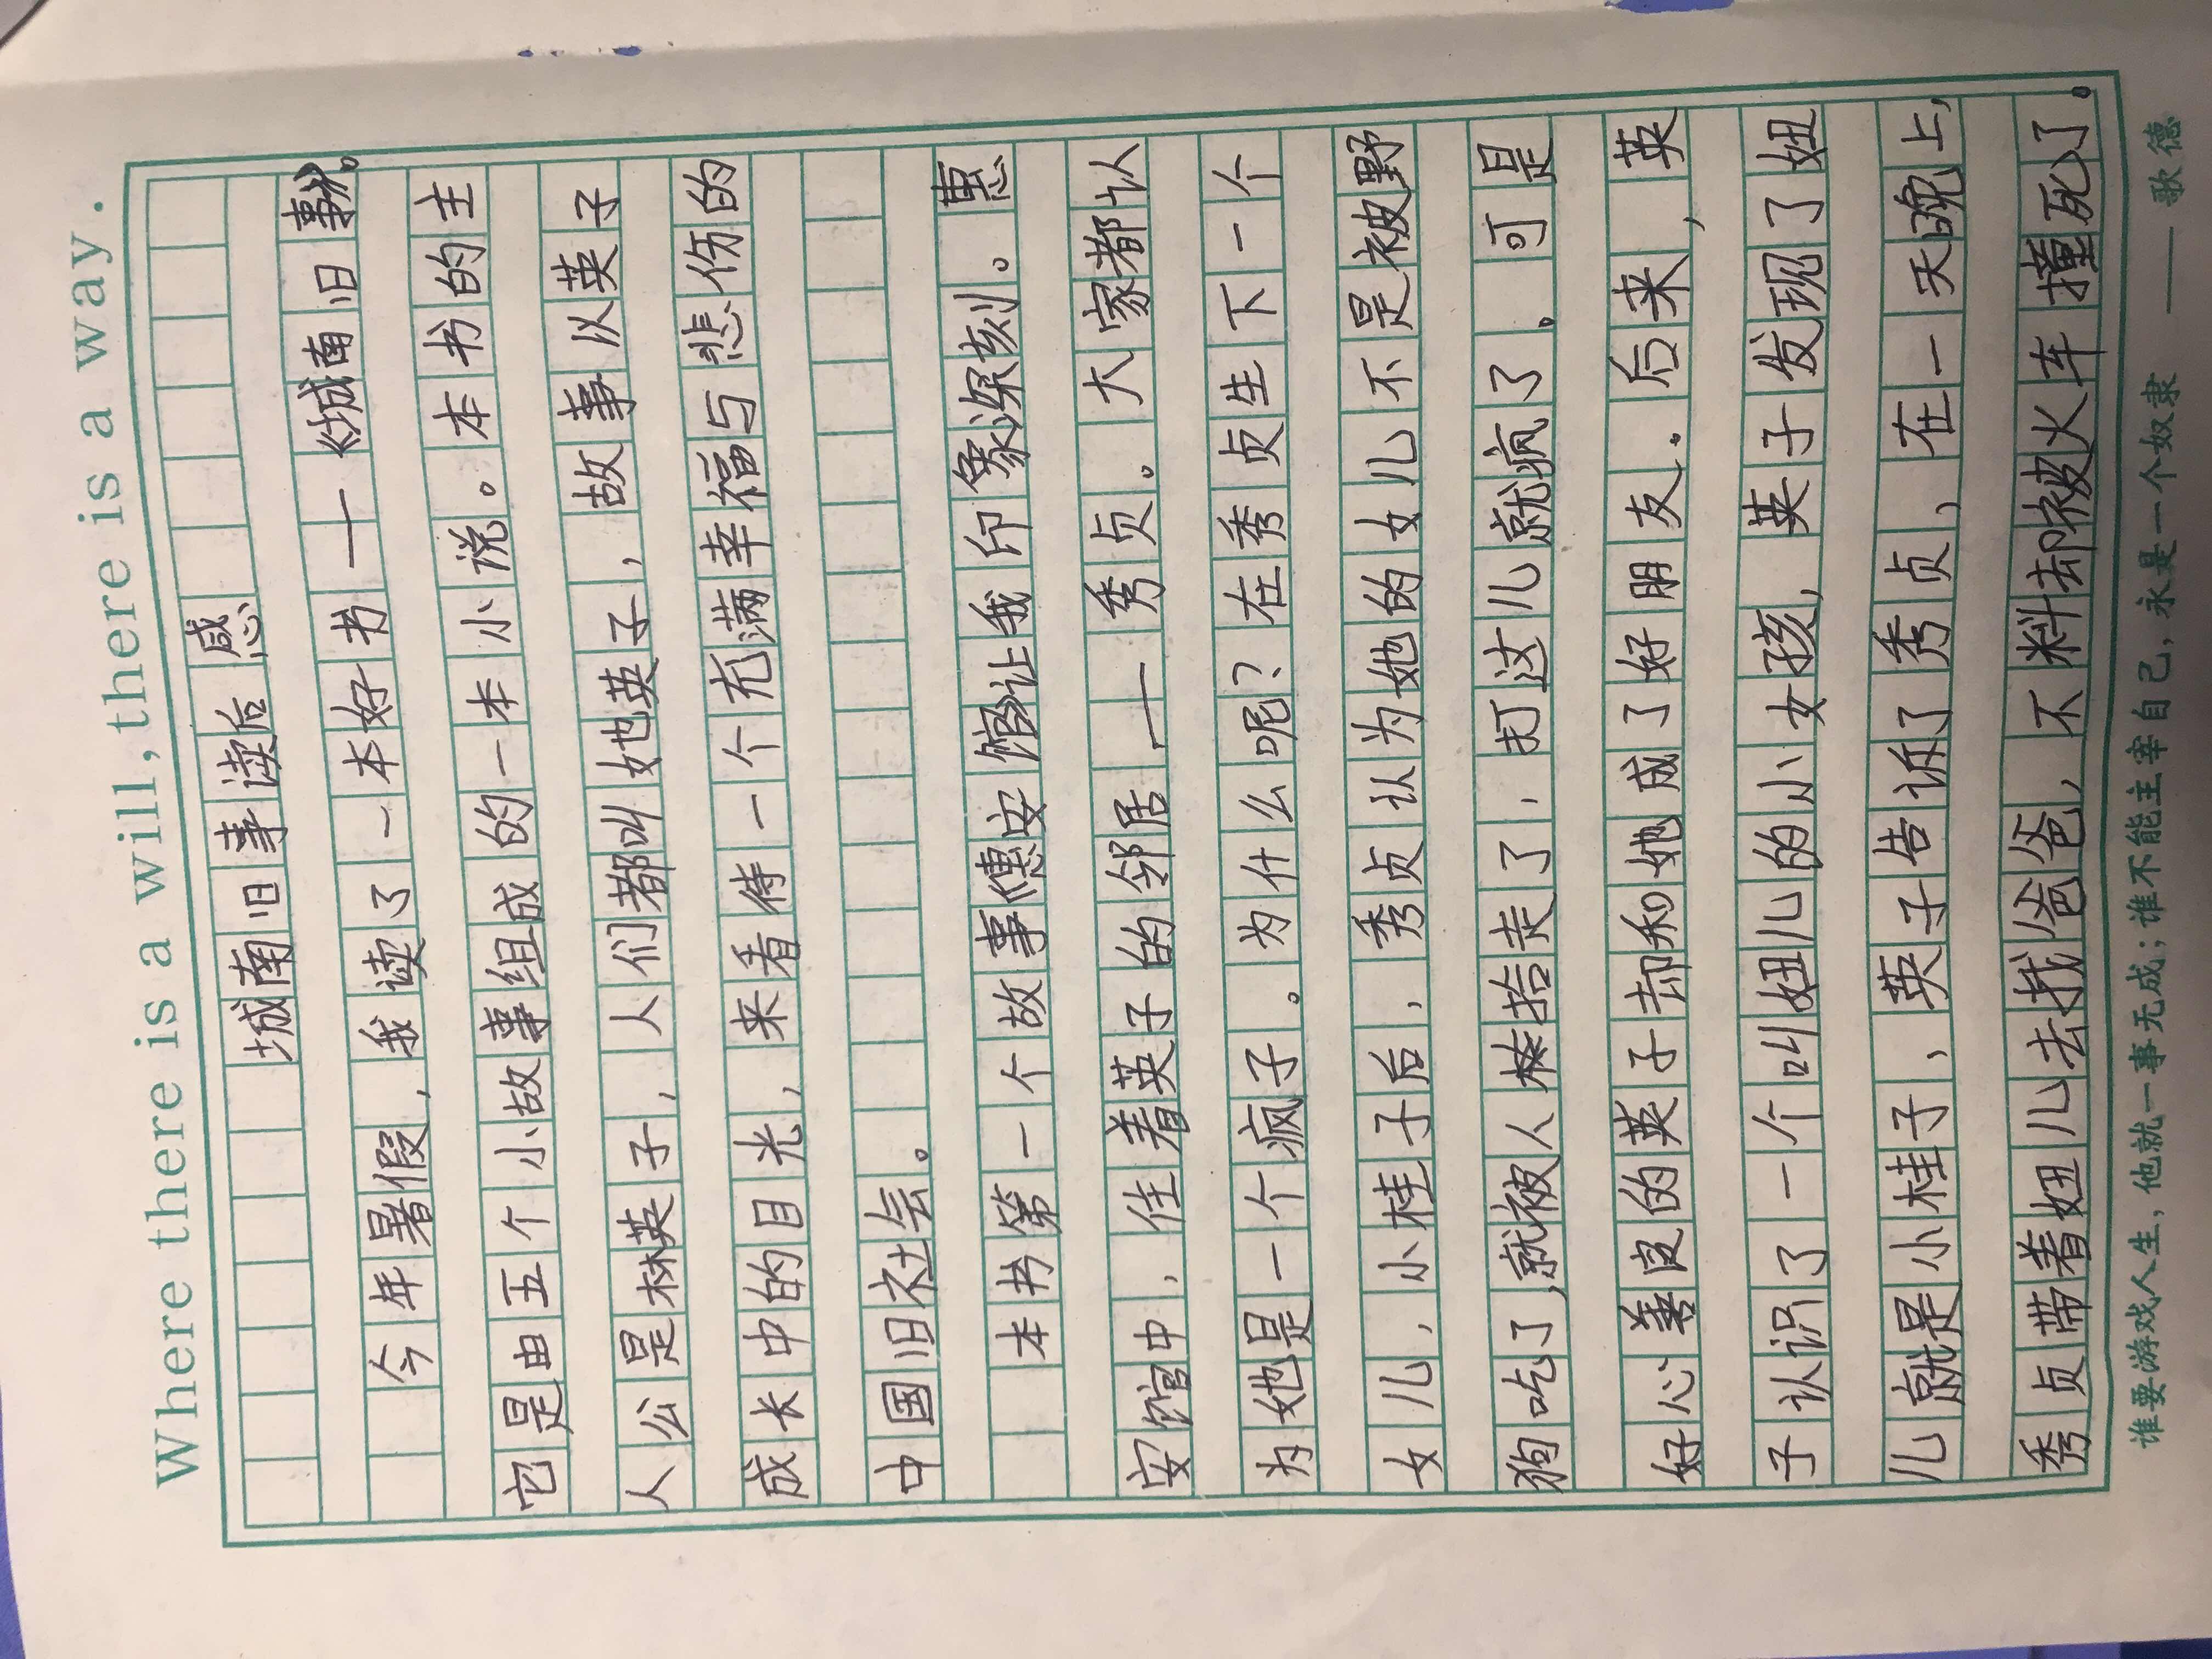 Where there is a will, there is a way.
城南旧事读后感
今年暑假，我读了一本好书——《城南旧事》。
它是由五个小故事组成的一本小说。本书的主
人公是林英子，人们都叫她英子，故事以英子
成长中的目光，来看待一个充满幸福与悲伤的
中国旧社会。
本书第一个故事《惠安馆》让我印象深刻。惠
安馆中，住着英子的邻居——秀贞。大家都认
为她是一个疯子。为什么呢？在秀贞生下一个
女儿，小桂子后，秀贞认为她的女儿不是被野
狗吃了，就被人捡走了，打这儿就疯了。可是
好心善良的英子却和她成了好朋友。后来，英
子认识了一个叫妞儿的小女孩，英子发现了妞
儿就是小桂子，英子告诉了秀贞，在一天晚上，
秀贞带着妞儿去找爸爸，不料却被火车撞死了。
谁要游戏人生，他就一事无成；谁不能主宰自己，永是一个奴隶 ——歌德